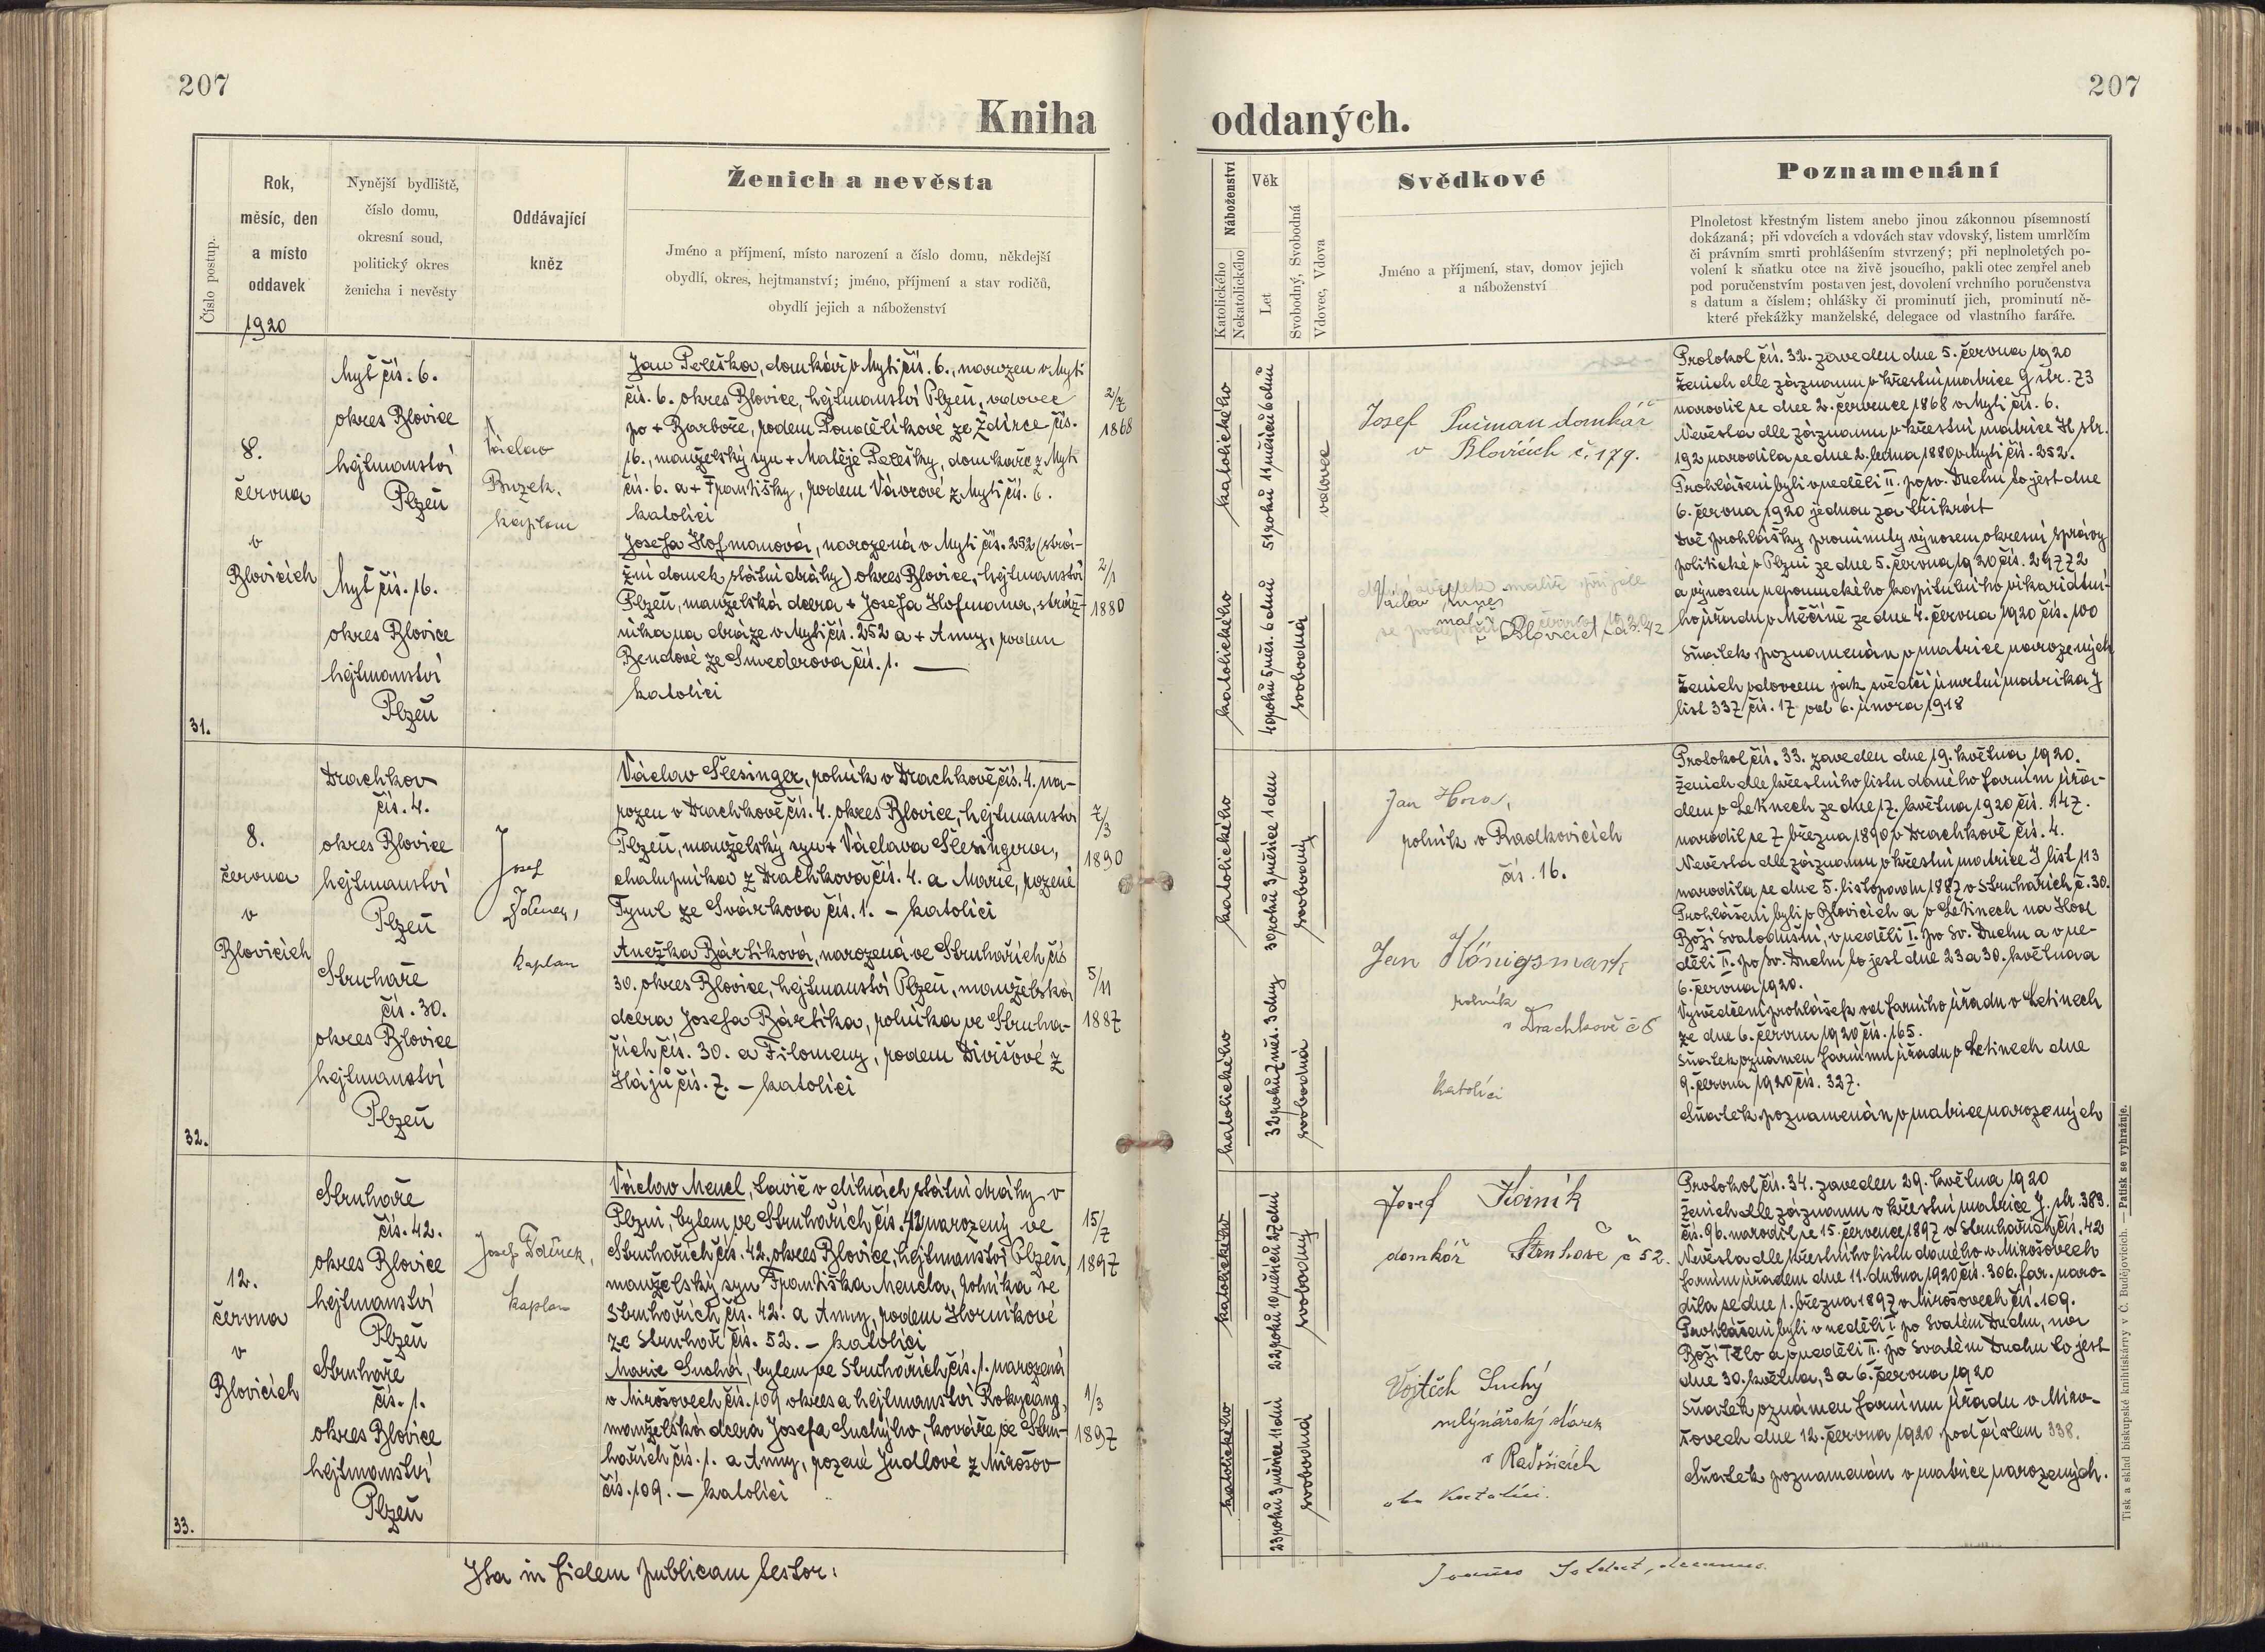 207
207
Kniha
oddaných.
Číslo postup.
Rok,
měsíc, den
a místo
oddavek
1920
Nynější bydliště,
číslo domu,
okresní soud,
politický okres
ženicha i nevěsty
Oddávající
kněz
Ženich a nevěsta
Jméno a příjmení, místo narození a číslo domu, někdejší
obydlí, okres, hejtmanství; jméno, příjmení a stav rodičů,
obydlí jejich a náboženství
Náboženství
Katolického
Nekatolického
Věk
Let
Svobodný, Svobodná
Vdovec, Vdova
Svědkové
Jméno a příjmení, stav, domov jejich
a náboženství
Poznamenání
Plnoletost křestným listem anebo jinou zákonnou písemností
dokázaná; při vdovcích a vdovách stav vdovský, listem umrlčím
či právním smrti prohlášením stvrzený; při neplnoletých po-
volení k sňatku otce na živě jsoucího, pakli otec zemřel aneb
pod poručenstvím postaven jest, dovolení vrchního poručenstva
s datum a číslem; ohlášky či prominutí jich, prominutí ně-
které překážky manželské, delegace od vlastního faráře.
31.
8.
června
v
Blovicích
Myť čís. 6.
okres Blovice
hejtmanství
Plzeň
Myť čís. 16.
okres Blovice
hejtmanství
Plzeň
Václav
Buzek,
kaplan
Jan Pereška, domkář v Myti čís. 6., narozen v Myti
čís. 6. okres Blovice, hejtmanství Plzeň, vdovec
po + Barboře, rodem Pondělíkové ze Ždírce čís.
16., manželský syn + Matěje Perešky, domkáře z Myti
čís. 6. a + Františky, rodem Vávrové z Myti čís. 6.
katolíci
Josefa Hofmanová, narozená v Myti čís. 252 (stráž-
ní domek státní dráhy) okres Blovice, hejtmanství
Plzeň, manželská dcera + Josefa Hofmana, stráž-
níka na dráze v Myti čís. 252 a + Anny, rodem
Bendové ze Smederova čís. 1.
katolíci
2/7
1868
2/1
1880
katolického
51 roků 11 měsíců 6 dnů
vdovec
katolického
40 roků 5 měs. 6 dnů
svobodná
Josef Pučman domkář
v Blovicích č. 179.
Václav
malíř
v Blovicích č. 42
Protokol čís. 32. zaveden dne 5. června 1920
Ženich dle záznamu v křestní matrice G str. 73
narodil se dne 2. července 1868 v Myti čís. 6.
Nevěsta dle záznamu v křestní matrice H str.
192 narodila se dne 2. ledna 1880 v Myti čís. 252.
Prohlášeni byli v neděli II. po sv. Duchu to jest dne
6. června 1920 jednou za třikrát
Dvě prohlášky prominuty výnosem okresní správy
politické v Plzni ze dne 5. června 1920 čís. 29772
a výnosem nepomuckého kapitulního vikariátní-
ho úřadu v Měčíně ze dne 4. června 1920 čís. 100
Sňatek poznamenán v matrice narozených
Ženich vdovcem jak svědčí úmrtní matrika J
list 337 čís. 17 od 6. února 1918
32.
8.
června
v
Blovicích
Drachkov
čís. 4.
okres Blovice
hejtmanství
Plzeň
Struhaře
čís. 30.
okres Blovice
hejtmanství
Plzeň
Josef
kaplan
Václav Šlesinger, rolník v Drachkově čís. 4. na-
rozen v Drachkově čís. 4. okres Blovice, hejtmanství
Plzeň, manželský syn + Václava Šlesingera,
chalupníka z Drachkova čís. 4. a Marie, rozené
Tyml ze Svárkova čís. 1. – katolíci
Anežka Bártíková, narozená ve Struhařích čís
30. okres Blovice, hejtmanství Plzeň, manželská
dcera Josefa Bártíka, rolníka ve Struha-
řích čís. 30. a Filomeny, rodem Divišové z
Hájů čís. 7. – katolíci
7/3
1890
5/11
1887
katolického
30 roků 3 měsíce 1 den
svobodný
katolického
32 roků 7 měs. 3 dny
svobodná
Jan Hora,
rolník v Radkovicích
čís. 16.
Jan Königsmark
rolník
v Drachkově č 6
Katolíci
Protokol čís. 33. zaveden dne 19. května 1920.
Ženich dle křestního listu daného farním úřa-
dem v Letinech ze dne 17. května 1920 čís. 147.
narodil se 7 března 1890 v Drachkově čís. 4.
Nevěsta dle záznamu v křestní matrice J list 113
narodila se dne 5. listopadu 1887 v Struhařích č. 30.
Prohlášeni byli v Blovicích a v Letinech na Hod
Boží Svatodušní, v neděli I. po sv. Duchu a v ne-
děli II. po sv. Duchu to jest dne 23 a 30. května a
6. června 1920.
Vysvědčení prohlášek od farního úřadu v Letinech
ze dne 6. června 1920 čís. 165.
Sňatek oznámen farnímu úřadu v Letinech dne
9. června 1920 čís. 327.
Sňatek poznamenán v matrice narozených
33.
12.
června
v
Blovicích
Struhaře
čís. 42.
okres Blovice
hejtmanství
Plzeň
Struhaře
čís. 1.
okres Blovice
hejtmanství
Plzeň
Josef
kaplan
Václav Mencl, tavič v dílnách státní dráhy v
Plzni, bytem ve Struhařích čís. 42 narozený ve
Struhařích čís. 42, okres Blovice, hejtmanství Plzeň,
manželský syn Františka Mencla, rolníka ve
Struhařích čís. 42. a Anny, rodem Horníkové
ze Struhař čís. 52. – katolíci
Marie Suchá, bytem ve Struhařích čís. 1. narozená
v Mirošovech čís. 109 okres a hejtmanství Rokycany,
manželská dcera Josefa Suchýho, kováře ve Stru-
hařích čís. 1. a Anny, rozené Judlové z Mirošov
čís. 109. – katolíci
15/7
1897
1/3
1897
katolického
22 roků 10 měsíců 27 dní
svobodný
katolického
23 roků 3 měsíce 11 dní
svobodná
Josef
domkář Struhaře č 52.
Vojtěch Suchý
mlýnářský dárek
v Radošicích
oba Katolíci.
Protokol čís. 34. zaveden 29. května 1920
Ženich dle záznamu v křestní matrice J. str. 383.
čís. 96. narodil se 15. července 1897 v Struhařích čís. 42
Nevěsta dle křestního listu daného v Mirošovech
farním úřadem dne 11. dubna 1920 čís. 306. far. naro-
dila se dne 1. března 1897 v Mirošovech čís. 109.
Prohlášeni byli v neděli I. po Svatém Duchu, na
Boží Tělo a v neděli II. po Svatém Duchu to jest
dne 30. května, 3 a 6. června 1920
Sňatek oznámen farnímu úřadu v Miro-
šovech dne 12. června 1920 pod číslem 338.
Sňatek poznamenán v matrice narozených.
Ita in fidem publicam testor:
decanus.
Tisk a sklad biskupské knihtiskárny v Č. Budějovicích. — Patisk se vyhražuje.